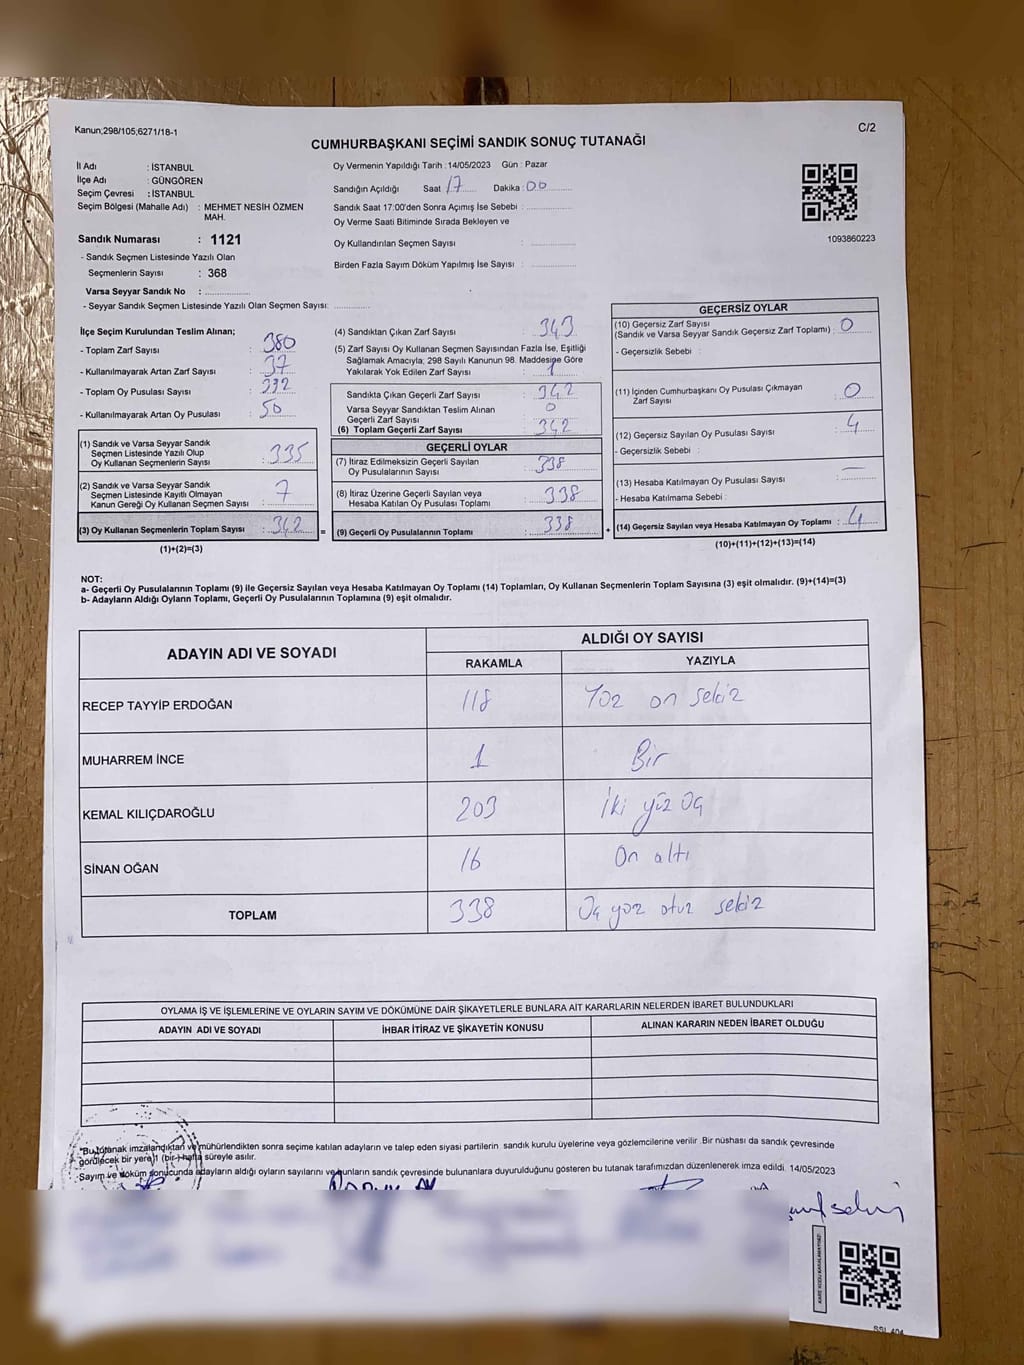 Kanun;298/105;6271/18-1
C/2
CUMHURBAŞKANI SEÇİMİ SANDIK SONUÇ TUTANAĞI
İl Adı : İSTANBUL
İlçe Adı : GÜNGÖREN
Seçim Çevresi : İSTANBUL
Seçim Bölgesi (Mahalle Adı) : MEHMET NESİH ÖZMEN
MAH.
Sandık Numarası : 1121
- Sandık Seçmen Listesinde Yazılı Olan
Seçmenlerin Sayısı : 368
Varsa Seyyar Sandık No :
- Seyyar Sandık Seçmen Listesinde Yazılı Olan Seçmen Sayısı:
Oy Vermenin Yapıldığı Tarih : 14/05/2023 Gün : Pazar
Sandığın Açıldığı Saat 17 Dakika : 00
Sandık Saat 17:00'den Sonra Açımış İse Sebebi :
Oy Verme Saati Bitiminde Sırada Bekleyen ve
Oy Kullandırılan Seçmen Sayısı :
Birden Fazla Sayım Döküm Yapılmış İse Sayısı :
1093860223
İlçe Seçim Kurulundan Teslim Alınan;
- Toplam Zarf Sayısı : 380
- Kullanılmayarak Artan Zarf Sayısı : 37
- Toplam Oy Pusulası Sayısı :
- Kullanılmayarak Artan Oy Pusulası : 50
(1) Sandık ve Varsa Seyyar Sandık
Seçmen Listesinde Yazılı Olup
Oy Kullanan Seçmenlerin Sayısı : 335
(2) Sandık ve Varsa Seyyar Sandık
Seçmen Listesinde Kayıtlı Olmayan
Kanun Gereği Oy Kullanan Seçmen Sayısı : 7
(3) Oy Kullanan Seçmenlerin Toplam Sayısı : 342 =
(1)+(2)=(3)
(4) Sandıktan Çıkan Zarf Sayısı : 343
(5) Zarf Sayısı Oy Kullanan Seçmen Sayısından Fazla İse, Eşitliği
Sağlamak Amacıyla, 298 Sayılı Kanunun 98. Maddesine Göre
Yakılarak Yok Edilen Zarf Sayısı : 1
Sandıkta Çıkan Geçerli Zarf Sayısı : 342
Varsa Seyyar Sandıktan Teslim Alınan
Geçerli Zarf Sayısı : 0
(6) Toplam Geçerli Zarf Sayısı : 342
GEÇERLİ OYLAR
(7) İtiraz Edilmeksizin Geçerli Sayılan
Oy Pusulalarının Sayısı : 338
(8) İtiraz Üzerine Geçerli Sayılan veya
Hesaba Katılan Oy Pusulası Toplamı : 338
(9) Geçerli Oy Pusulalarının Toplamı : 338 +
GEÇERSİZ OYLAR
(10) Geçersiz Zarf Sayısı
(Sandık ve Varsa Seyyar Sandık Geçersiz Zarf Toplamı) : 0
- Geçersizlik Sebebi :
(11) İçinden Cumhurbaşkanı Oy Pusulası Çıkmayan
Zarf Sayısı : 0
(12) Geçersiz Sayılan Oy Pusulası Sayısı : 4
- Geçersizlik Sebebi :
(13) Hesaba Katılmayan Oy Pusulası Sayısı : —
- Hesaba Katılmama Sebebi :
(14) Geçersiz Sayılan veya Hesaba Katılmayan Oy Toplamı : 4
(10)+(11)+(12)+(13)=(14)
NOT:
a- Geçerli Oy Pusulalarının Toplamı (9) ile Geçersiz Sayılan veya Hesaba Katılmayan Oy Toplamı (14) Toplamları, Oy Kullanan Seçmenlerin Toplam Sayısına (3) eşit olmalıdır. (9)+(14)=(3)
b- Adayların Aldığı Oyların Toplamı, Geçerli Oy Pusulalarının Toplamına (9) eşit olmalıdır.
ADAYIN ADI VE SOYADI ALDIĞI OY SAYISI
RAKAMLA YAZIYLA
RECEP TAYYİP ERDOĞAN 118 Yüz on sekiz
MUHARREM İNCE 1 Bir
KEMAL KILIÇDAROĞLU 203 İki yüz üç
SİNAN OĞAN 16 On altı
TOPLAM 338 Üç yüz otuz sekiz
OYLAMA İŞ VE İŞLEMLERİNE VE OYLARIN SAYIM VE DÖKÜMÜNE DAİR ŞİKAYETLERLE BUNLARA AİT KARARLARIN NELERDEN İBARET BULUNDUKLARI
ADAYIN ADI VE SOYADI İHBAR İTİRAZ VE ŞİKAYETİN KONUSU ALINAN KARARIN NEDEN İBARET OLDUĞU
"Bu tutanak imzalandıktan ve mühürlendikten sonra seçime katılan adayların ve talep eden siyasi partilerin sandık kurulu üyelerine veya gözlemcilerine verilir .Bir nüshası da sandık çevresinde
görülecek bir yere 1 (bir) hafta süreyle asılır.
Sayım ve döküm sonucunda adayların aldığı oyların sayılarını ve bunların sandık çevresinde bulunanlara duyurulduğunu gösteren bu tutanak tarafımızdan düzenlenerek imza edildi. 14/05/2023
KARE KODU KARALAMAYINIZ!